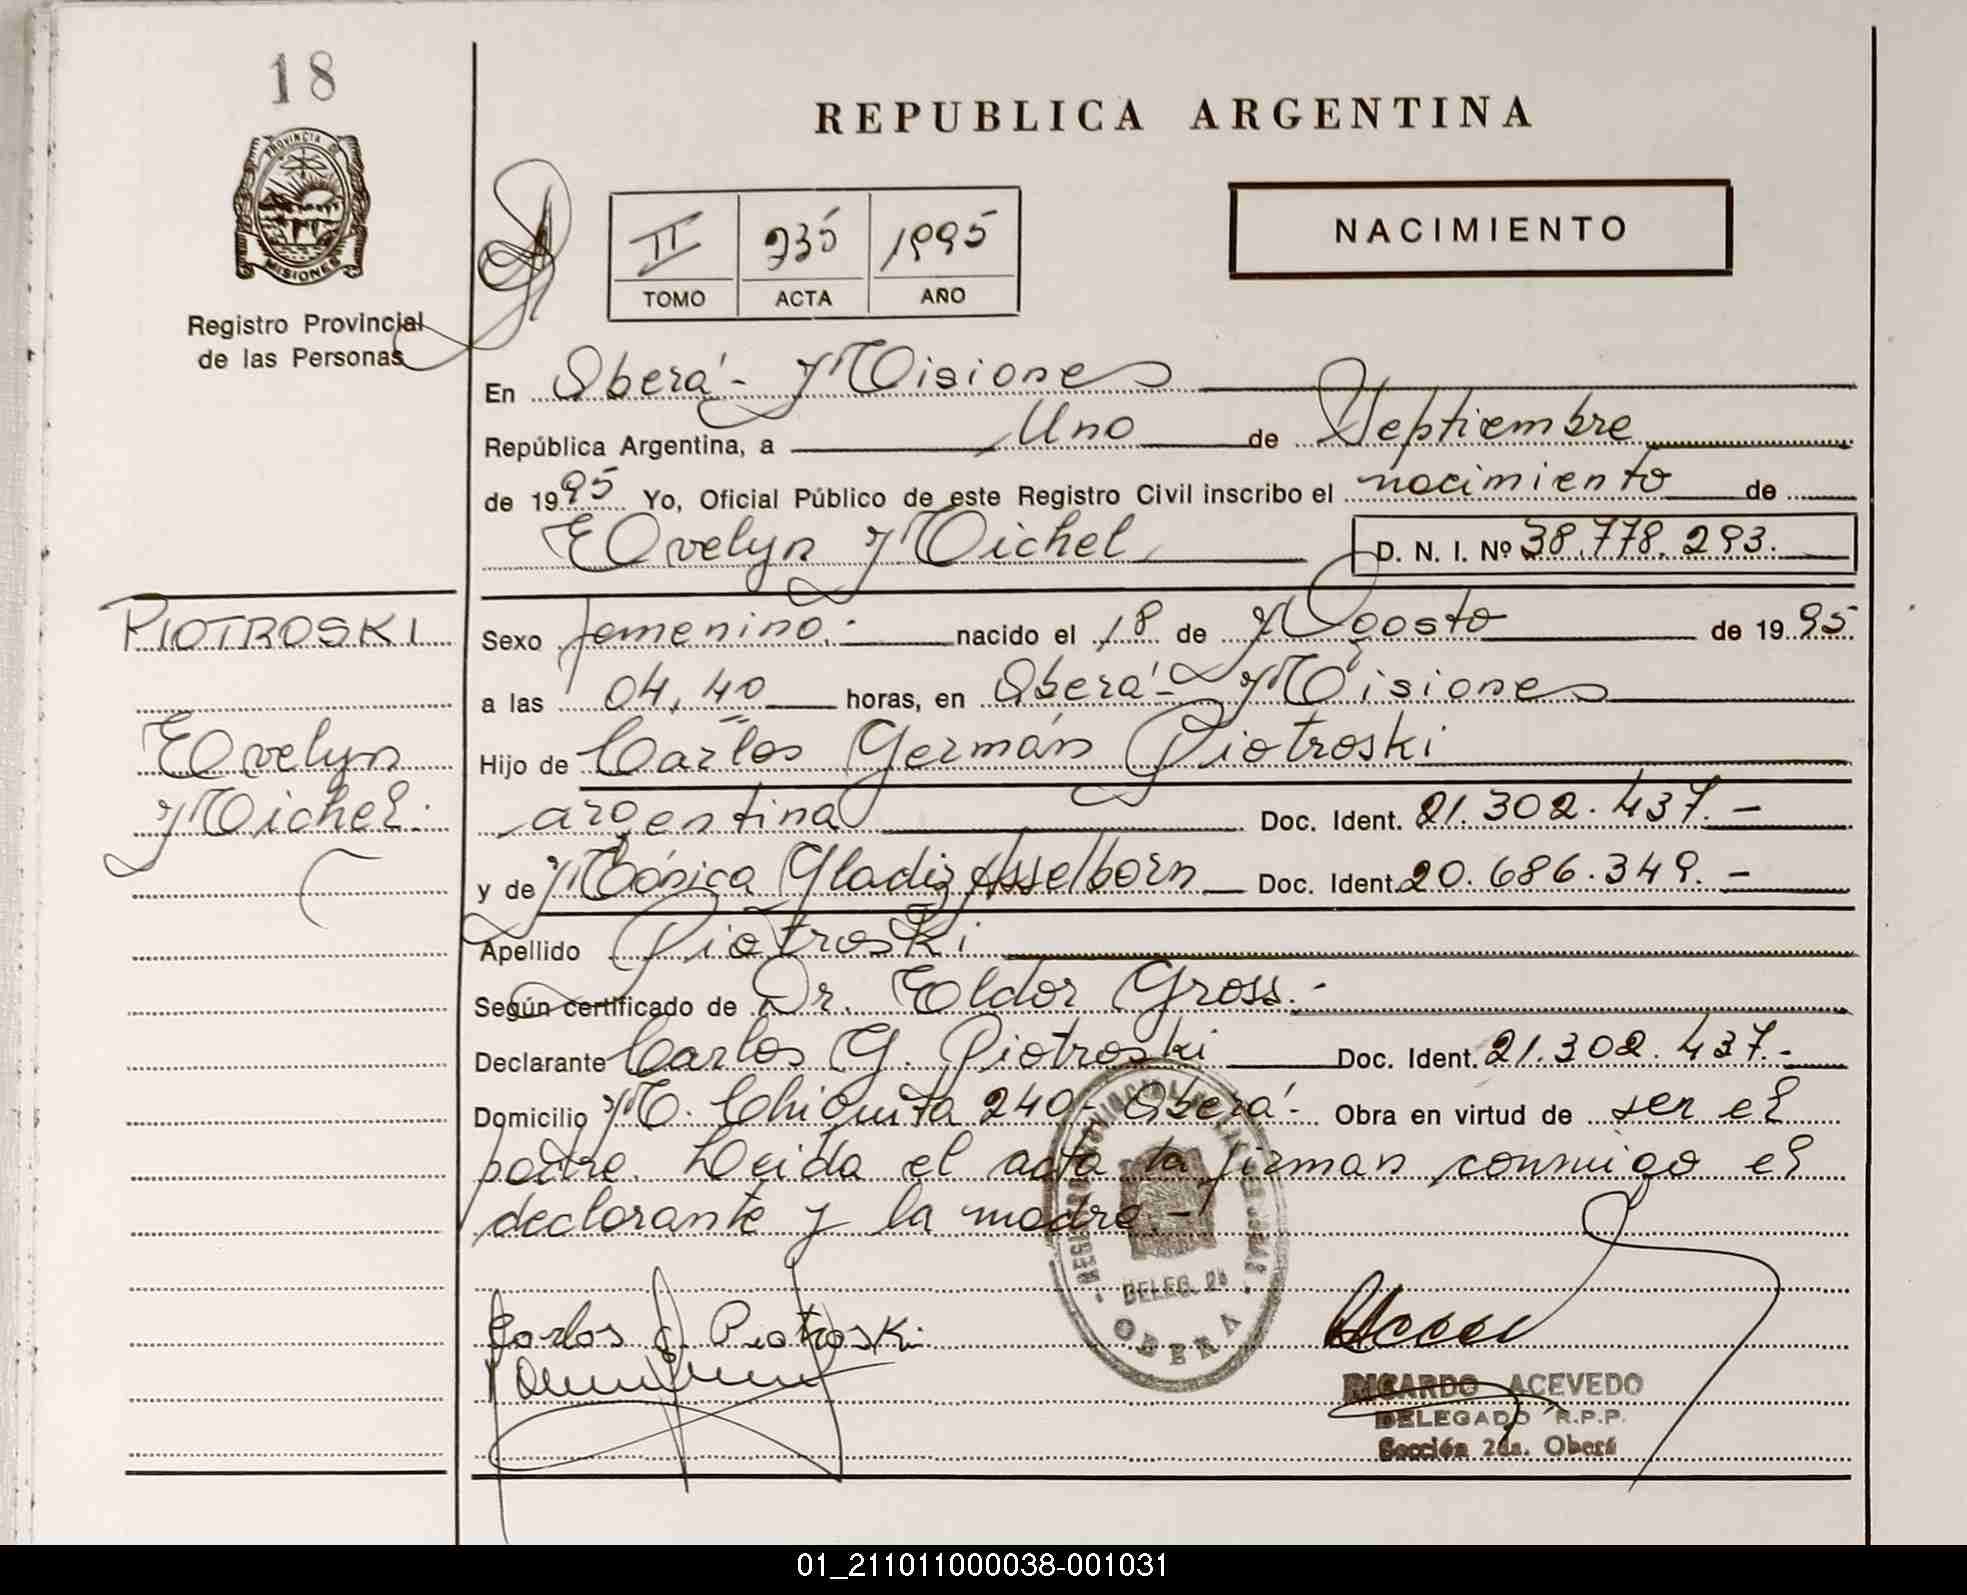 18
REPUBLICA ARGENTINA
PROVINCIA DE
MISIONES
Registro Provincial
de las Personas
II 935 1995
TOMO ACTA AÑO
NACIMIENTO
En Oberá - Misiones
República Argentina, a Uno de Septiembre
de 1995 Yo, Oficial Público de este Registro Civil inscribo el nacimiento de
Evelyn Michel D. N. I. Nº 38.778.293.
PIOTROSKI
Evelyn
Michel.
Sexo femenino.- nacido el 18 de Agosto de 1995
a las 04,40 horas, en Oberá - Misiones
Hijo de Carlos Germán Piotroski
argentina Doc. Ident. 21.302.437.-
y de Mónica Gladiz Asselborn Doc. Ident. 20.686.349.-
Apellido Piotroski
Según certificado de Dr. Eldor Gross.-
Declarante Carlos G. Piotroski Doc. Ident. 21.302.437.-
Domicilio M. Chiquita 240 - Oberá - Obra en virtud de ser el
padre. Leida el acta la firman conmigo el
declarante y la madre.-
DELEG.
OBERA
Carlos G. Piotroski
RICARDO ACEVEDO
DELEGADO R.P.P.
Sección 2da. Oberá
01_211011000038-001031